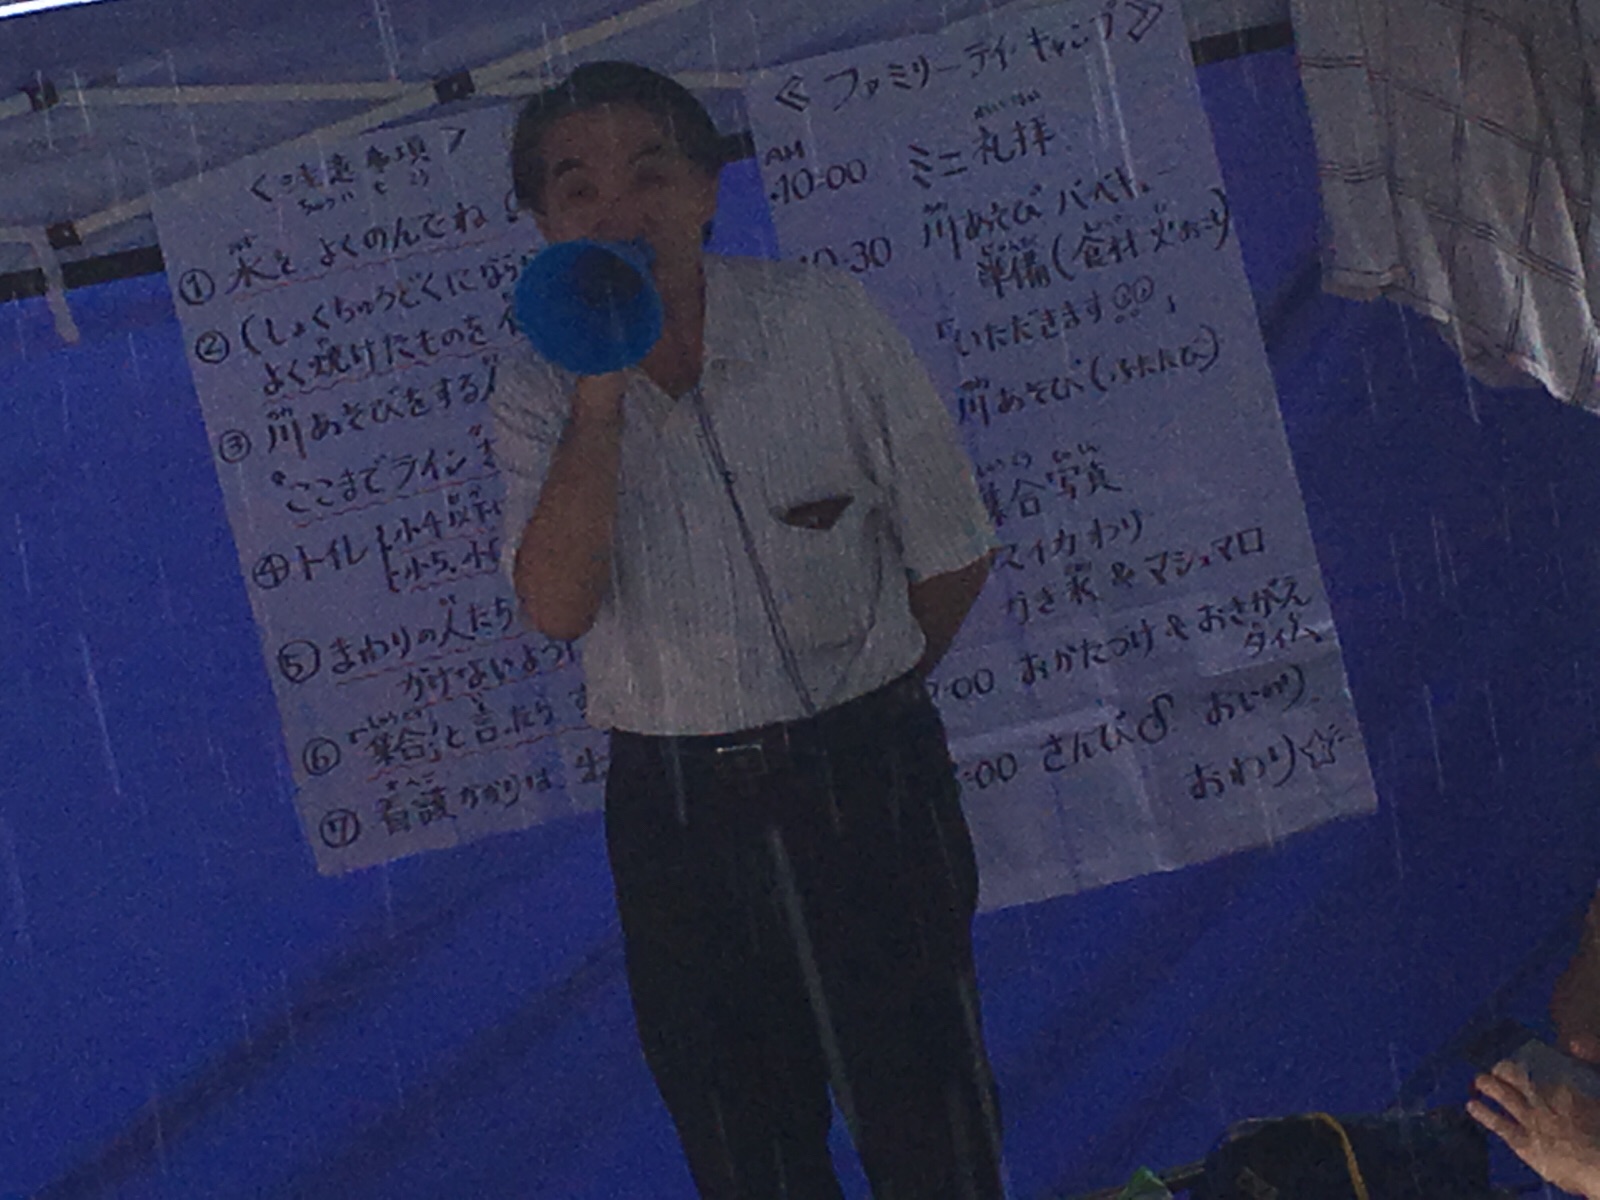 <注意事項>
ちゅういじこう
① 水を よくのんでね
② (しょくちゅうどくにならな
よく焼けたものを
③ 川あそびをする人
"ここまでライン"
④ トイレ 小4以下
小5、小6
⑤ まわりの人たち
がけないように
⑥「集合」と言ったら す
⑦ 看護かかりは
≪ファミリーデイキャンプ≫
AM
10:00 ミニ礼拝
10:30 川あそび バーベキュー
準備(食材 火おこし)
「いただきます」
川あそび(ふたたび)
集合写真
スイカわり
かき氷 & マシュマロ
:00 おかたづけ & おきがえ
タイム
:00 さんび おいのり
おわり☆